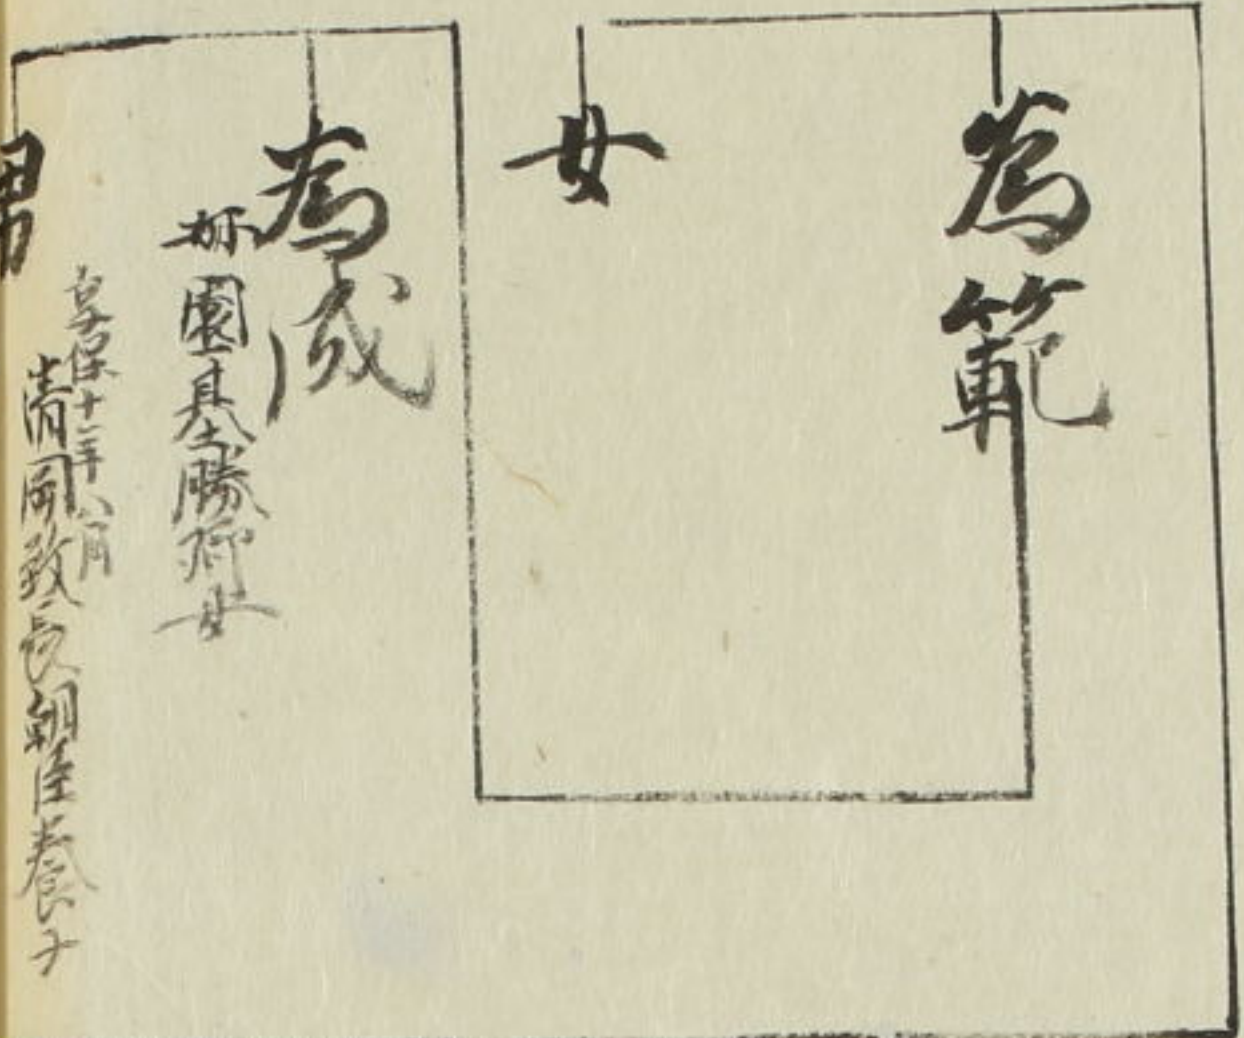 為範
女
為成
妳園基勝卿女
男
享保十一年八月
清岡致長朝臣養子